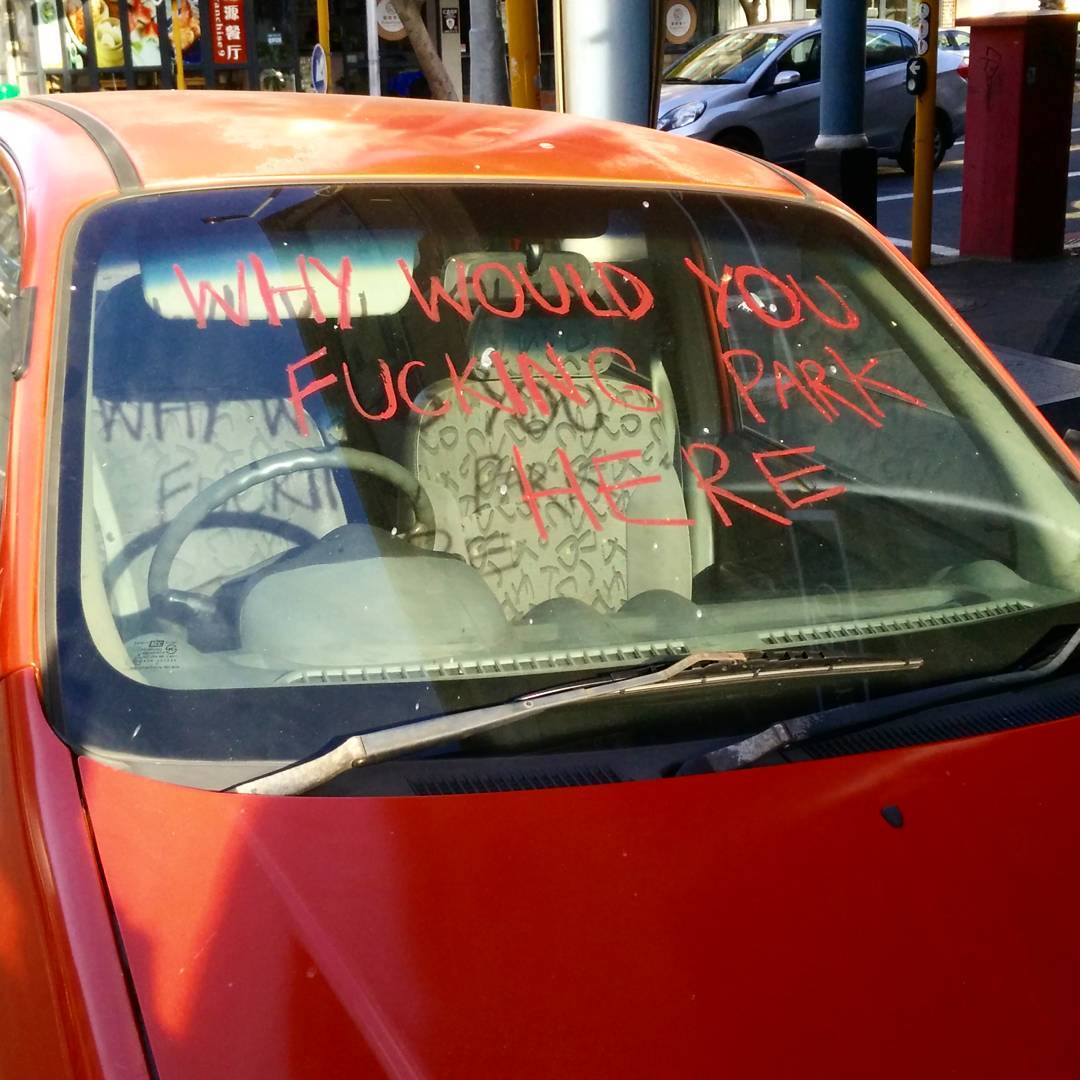 源餐厅
WHY WOULD YOU
FUCKING PARK
HERE